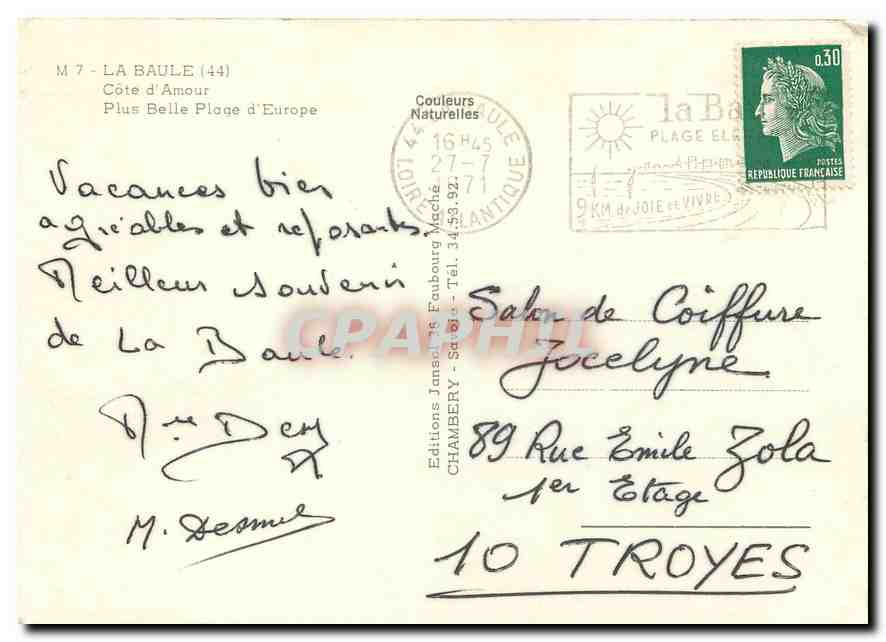 M 7 - LA BAULE (44)
Côte d'Amour
Plus Belle Plage d'Europe
Couleurs
Naturelles
44 BAULE
16 H45
27-7
1971
LOIRE ATLANTIQUE
la Ba
PLAGE ELE
9 KM de JOIE de VIVRE
0,30
POSTES
REPUBLIQUE FRANÇAISE
Vacances bien
agréables et reposantes.
Meilleur souvenir
de La Baule.
Mme
M.
Editions Jansol 36 Faubourg Maché
CHAMBERY - Savoie - Tél. 34.53.92.
CPAPHIL
Salon de Coiffure
Jocelyne
89 Rue Emile Zola
1er Etage
10 TROYES